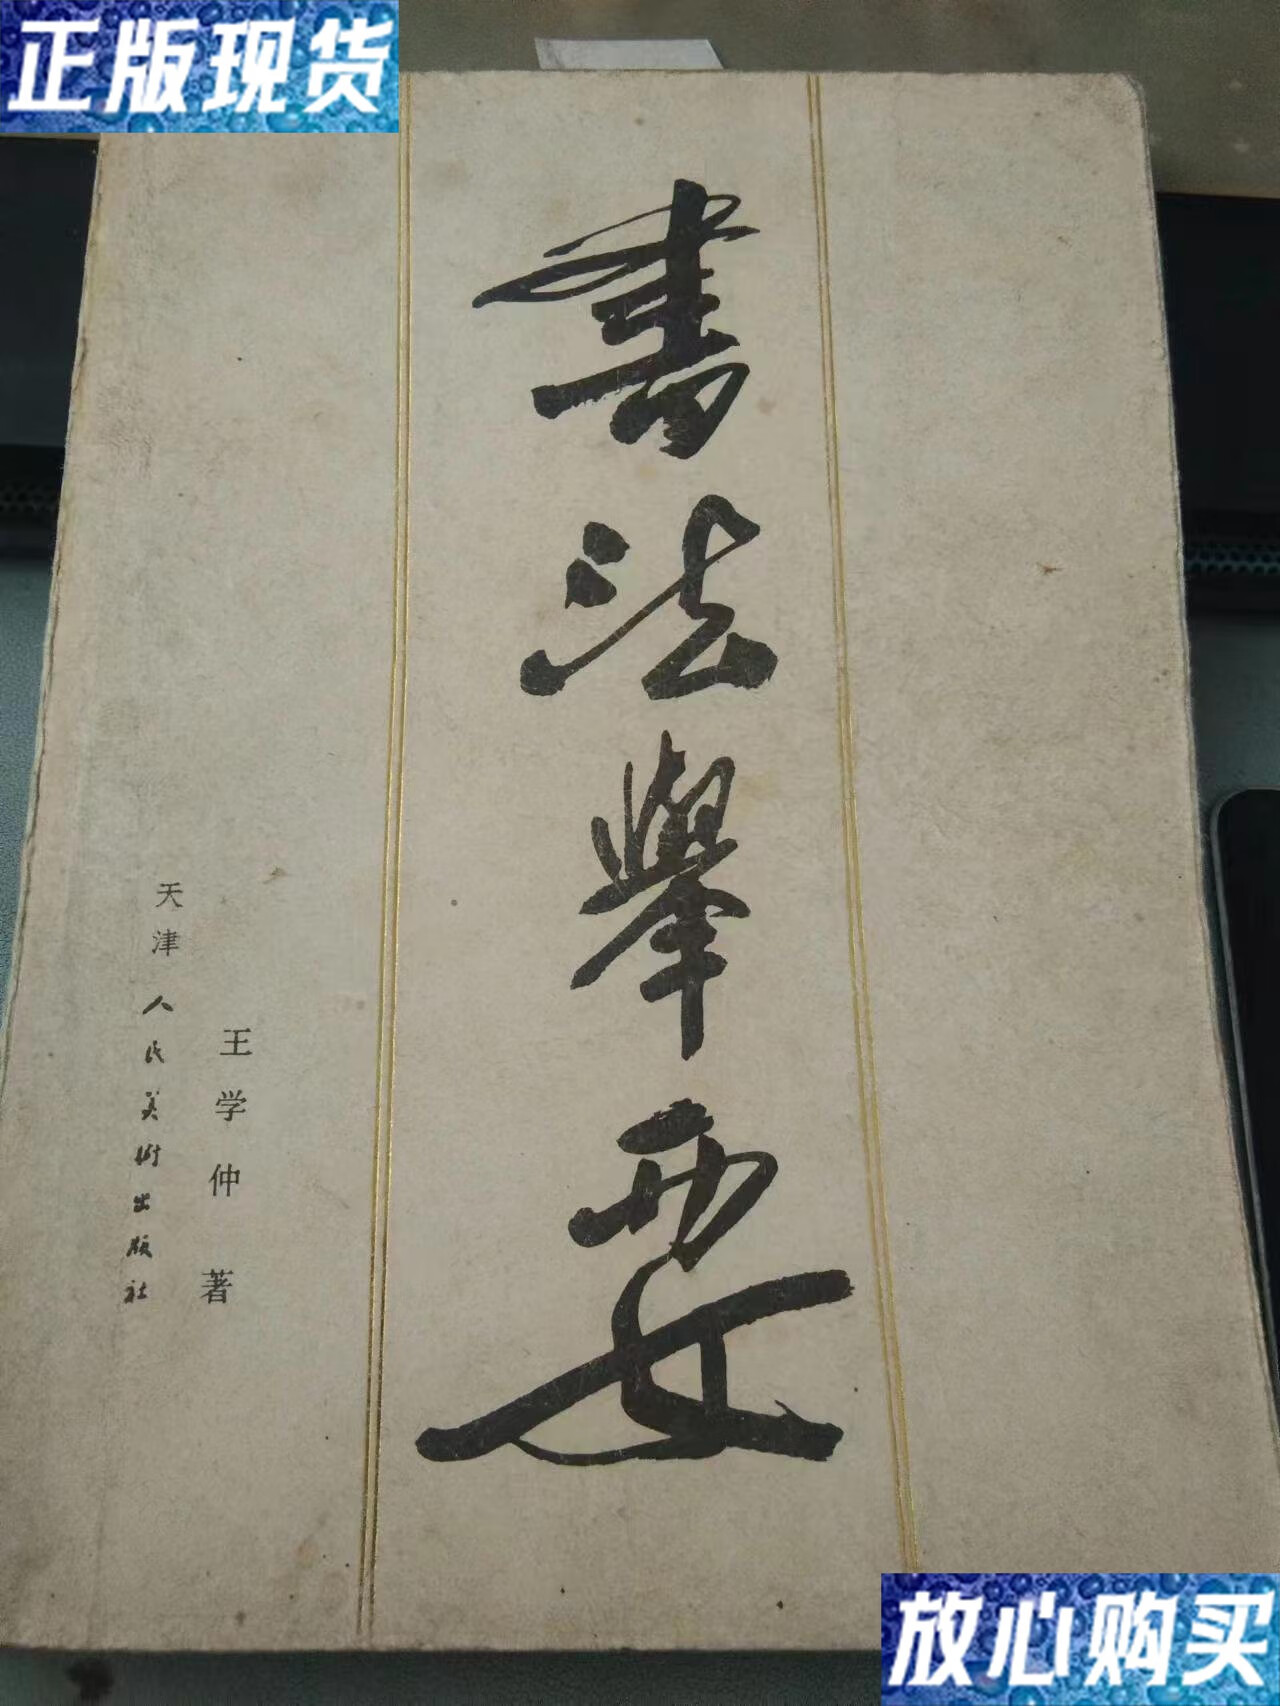 正版现货
書法舉要
王学仲 著
天津人民美術出版社
放心购买